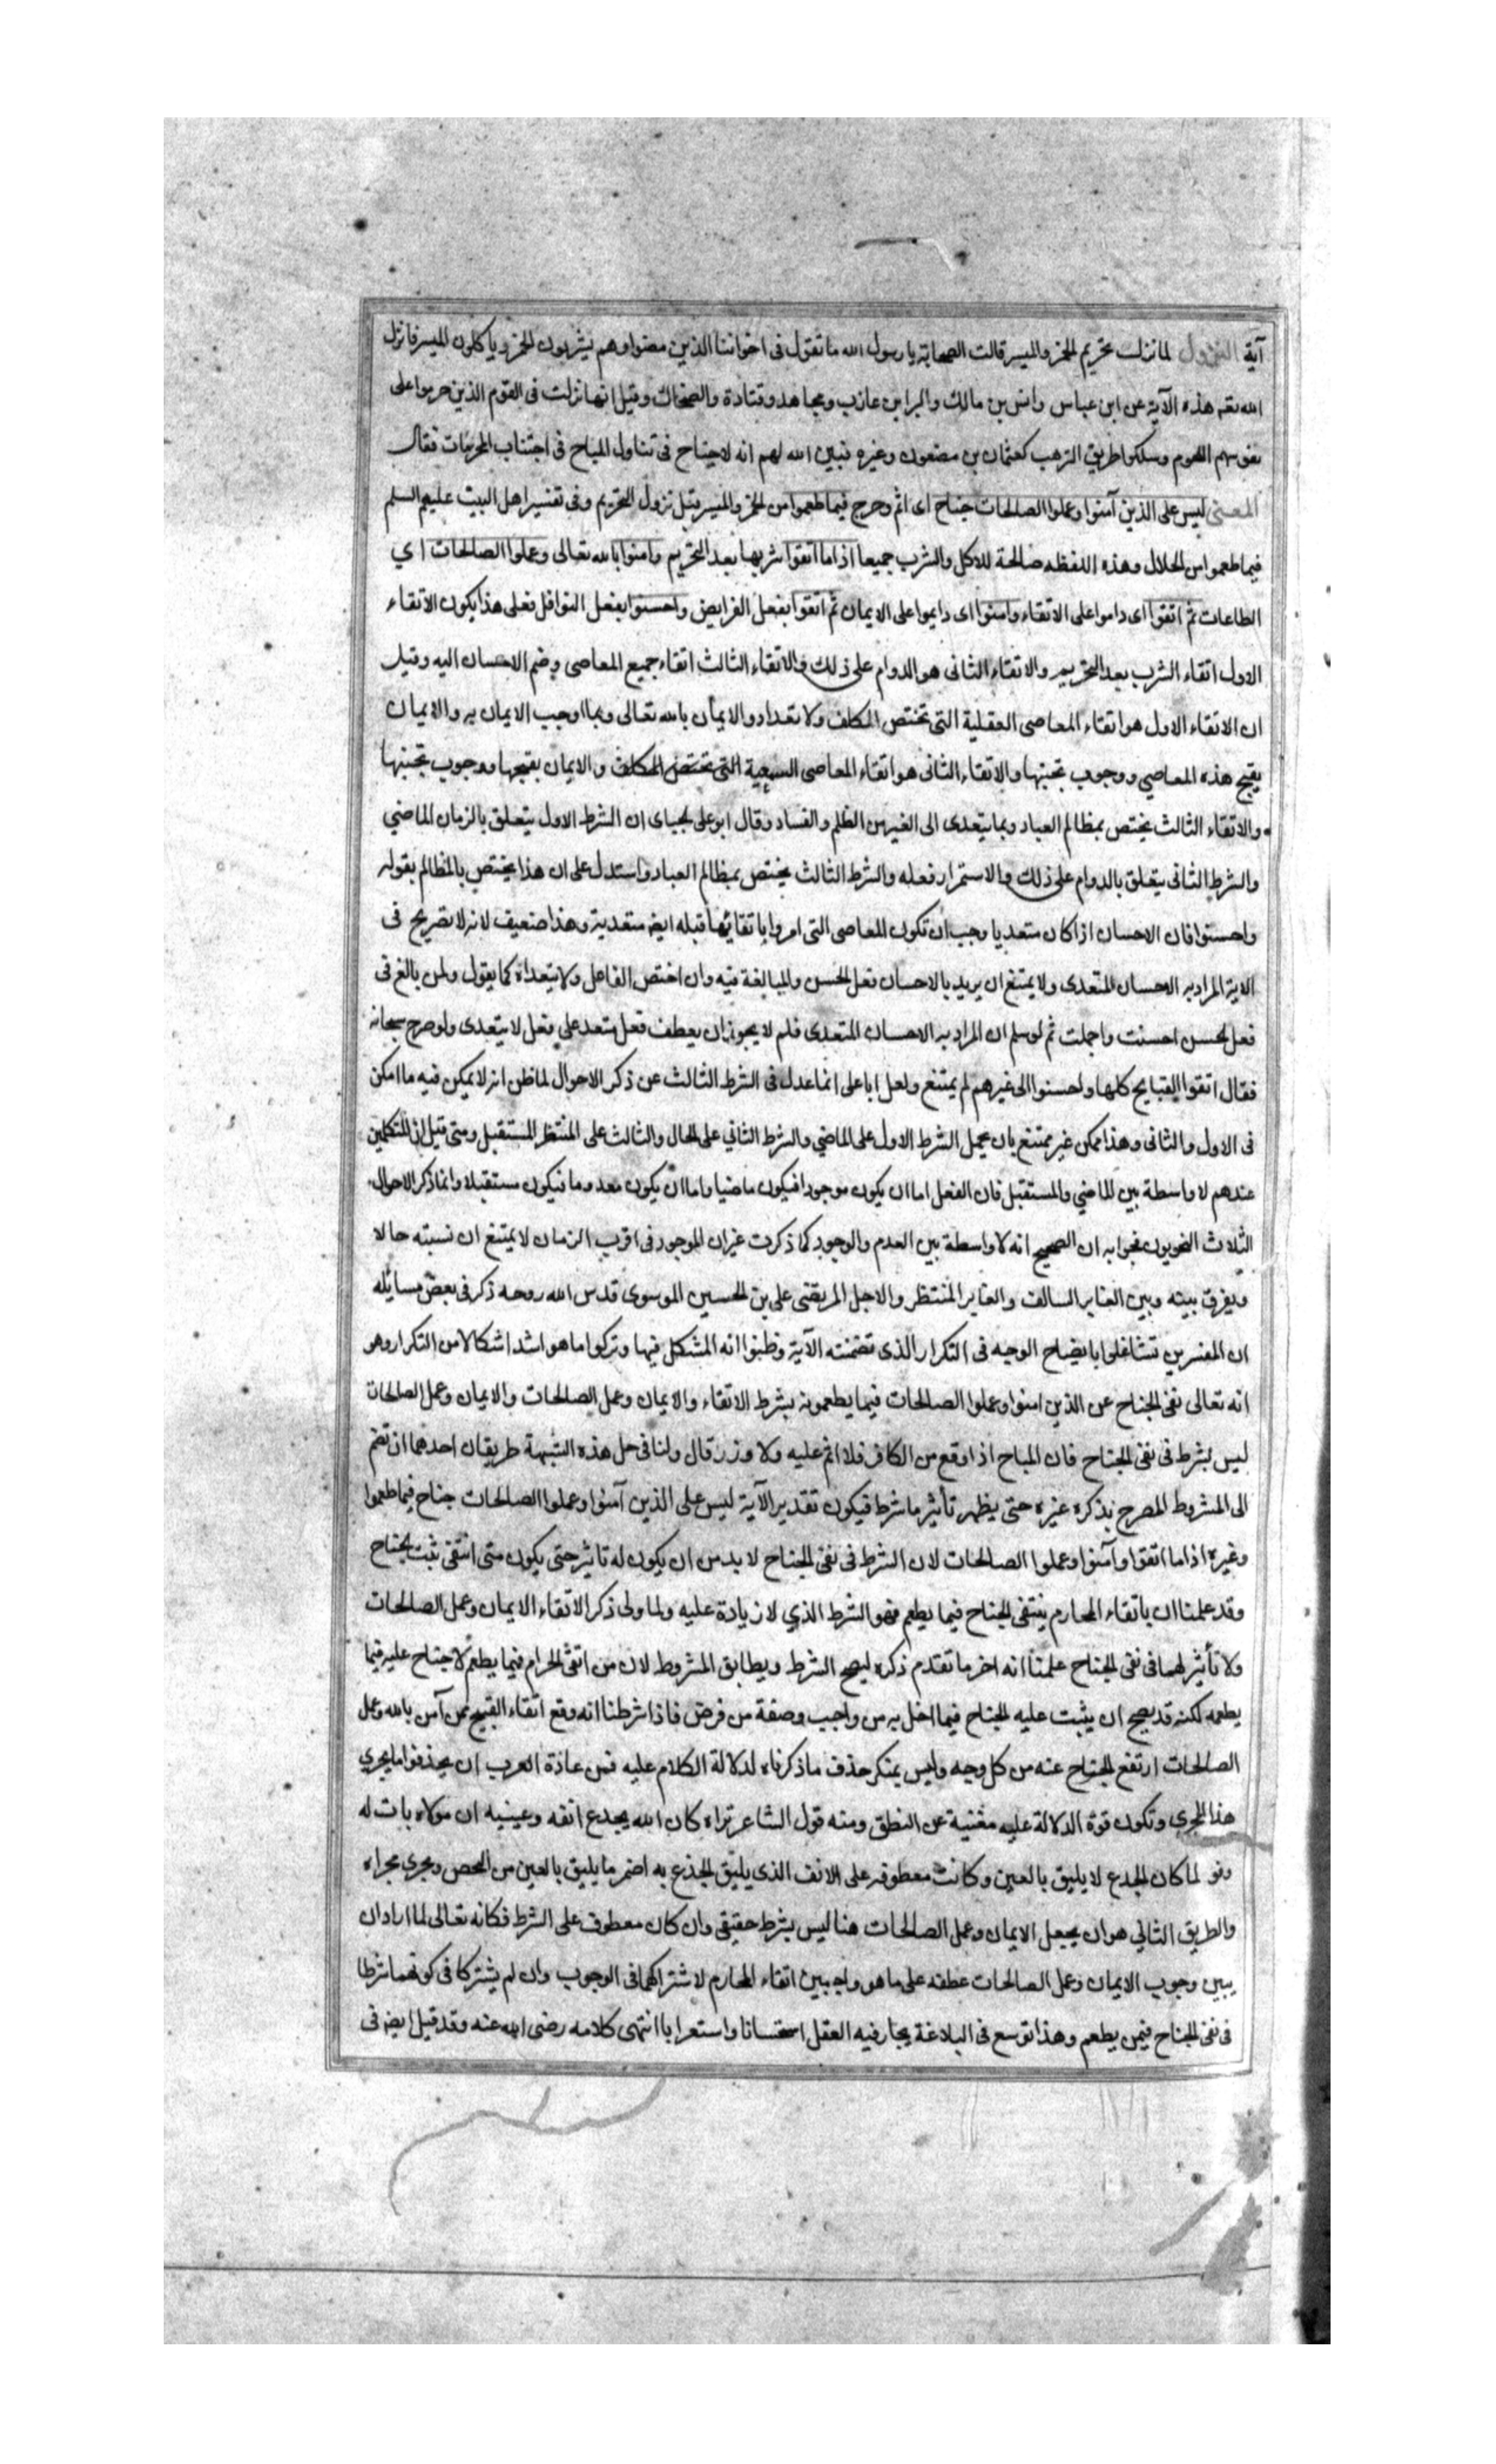 آية النزول لما نزلت تحريم الخمر والميسر قالت الصحابة يا رسول الله ما تقول فى اخواننا الذين مضوا وهم يشربون الخمر وياكلون الميسر فانزل
الله تعه هذه الآية عن ابن عباس وانس بن مالك والبرا بن عازب ومجاهد وقتادة والضحاك وقيل انها نزلت فى القوم الذين حرموا على
نفوسهم اللحوم وسلكوا طريق الترهب كعثمان بن مضعون وغيره فبين الله لهم انه لا جناح فى تناول المباح فى اجتناب المحرمات فقال
المعنى ليس على الذين آمنوا وعملوا الصالحات جناح اى اثم وحرج فيما طعموا من الخمر والميسر قبل نزول التحريم وفى تفسير اهل البيت عليهم السلم
فيما طعموا من الحلال وهذه اللفظه صالحة للاكل والشرب جميعا اذا ما اتقوا شربها بعد التحريم وامنوا بالله تعالى وعملوا الصالحات اي
الطاعات ثم اتقوا اى داموا على الاتقاء وامنوا اى دايموا على الايمان ثم اتقوا بفعل الفرايض واحسنوا بفعل النوافل فعلى هذا يكون الاتقاء
الاول اتقاء الشرب بعد التحريم والاتقاء الثانى هو الدوام على ذلك والاتقاء الثالث اتقاء جميع المعاصى وضم الاحسان اليه وقيل
ان الاتقاء الاول هو اتقاء المعاصى العقلية التى تختص المكلف ولا تعداه والايمان بالله تعالى وبما اوجب الايمان به والايمان
بقبح هذه المعاصي ووجوب تجنبها والاتقاء الثانى هو اتقاء المعاصى السمعية التى تختص المكلف والايمان بقبحها ووجوب تجنبها
والاتقاء الثالث يختص بمظالم العباد وبما يتعدى الى الغير من الظلم والفساد وقال ابو على الجباى ان الشرط الاول يتعلق بالزمان الماضي
والشرط الثانى يتعلق بالدوام على ذلك والاستمرار فعله والشرط الثالث يختص بمظالم العباد واستدل على ان هذا يختص بالمظالم بقوله
واحسنوا فان الاحسان اذا كان متعديا وجب ان تكون المعاصى التى امروا باتقائها قبله ايض متعدية وهذا ضعيف لانه لا تصريح فى
الاية المراد به الاحسان المتعدى ولا يمتنع ان يريد بالاحسان فعل الحسن والمبالغة فيه وان اختص الفاعل ولا يتعداه كما يقول ولمن بالغ فى
فعل الحسن احسنت واجملت ثم لو سلم ان المراد به الاحسان المتعدى فلم لا يجوز ان يعطف فعل متعد علي فعل لا يتعدى ولو صرح سبحانه
فقال اتقوا القبايح كلها واحسنوا الى غيرهم لم يمتنع ولعل ابا على انما عدل فى الشرط الثالث عن ذكر الاحوال لما ظن انه لا يمكن فيه ما امكن
فى الاول والثانى وهذا ممكن غير ممتنع بان يحمل الشرط الاول على الماضي والشرط الثاني على الحال والثالث على المنتظر المستقبل ومتى قيل ان المتكلمين
عندهم لا واسطة بين الماضي والمستقبل فان الفعل اما ان يكون موجودا فيكون ماضيا واما ان يكون معدوما فيكون مستقبلا وانما ذكر الاحوال
الثلاث النحويون فجوابه ان الصحيح انه لا واسطة بين العدم والوجود كما ذكرت غير ان الموجود فى اقرب الزمان لا يمتنع ان نسبته حالا
ويفرق بينه وبين الغابر السالف والغابر المنتظر والاجل المرتضى على بن الحسين الموسوى قدس الله روحه ذكر فى بعض مسائله
ان المفسرين تشاغلوا بايضاح الوجه فى التكرار الذى تضمنته الآية وظنوا انه المشكل فيها وتركوا ما هو اشد اشكالا من التكرار وهو
انه تعالى نفى الجناح عن الذين امنوا وعملوا الصالحات فيما يطعمونه بشرط الاتقاء والايمان وعمل الصالحات والايمان وعمل الصالحات
ليس بشرط فى نفى الجناح فان المباح اذا وقع من الكافر فلا اثم عليه ولا وزر قال ولنا فى حل هذه الشبهة طريقان احدهما ان تضم
الى المشروط المصرح بذكره غيره حتى يظهر تأثير ما شرط فيكون تقدير الآية ليس على الذين آمنوا وعملوا الصالحات جناح فيما طعموا
وغيره اذا ما اتقوا وآمنوا وعملوا الصالحات لان الشرط فى نفى الجناح لا بد من ان يكون له تاثير حتى يكون متى انتفى ثبت الجناح
وقد علمنا ان باتقاء المحارم ينتفى الجناح فيما يطعم فهو الشرط الذي لا زيادة عليه ولما ولى ذكر الاتقاء الايمان وعمل الصالحات
ولا تأثير لهما فى نفى الجناح علمنا انه اخر ما تقدم ذكره ليصح الشرط ويطابق المشروط لان من اتقى الحرام فيما يطعم لا جناح عليه فيما
يطعمه لكنه قد يصح ان يثبت عليه الجناح فيما اخل به من واجب وصفة من فرض فاذا شرطنا انه وقع اتقاء القبيح ممن آمن بالله وعمل
الصالحات ارتفع الجناح عنه من كل وجه وليس بمنكر حذف ما ذكرناه لدلالة الكلام عليه فمن عادة العرب ان يحذفوا ما يجري
هذا المجرى وتكون قوة الدلالة عليه مغنية عن النطق ومنه قول الشاعر تراه كان الله يجدع انفه وعينيه ان مولاه بات له
وفر لما كان الجدع لا يليق بالعين وكانت معطوفه على الانف الذى يليق الجذع به اضمر ما يليق بالعين من البخص ويجرى مجراه
والطريق الثاني هو ان يجعل الايمان وعمل الصالحات هنا ليس بشرط حقيقى وان كان معطوف على الشرط فكانه تعالى لما اراد ان
يبين وجوب الايمان وعمل الصالحات عطفه على ما هو واجب من اتقاء المحارم لاشتراكهما فى الوجوب وان لم يشتركا فى كونهما شرطا
فى نفى الجناح فيمن يطعم وهذا توسع فى البلاغة يحار فيه العقل استحسانا واستعرابا انتهى كلامه رضى الله عنه وقد قيل ايض فى